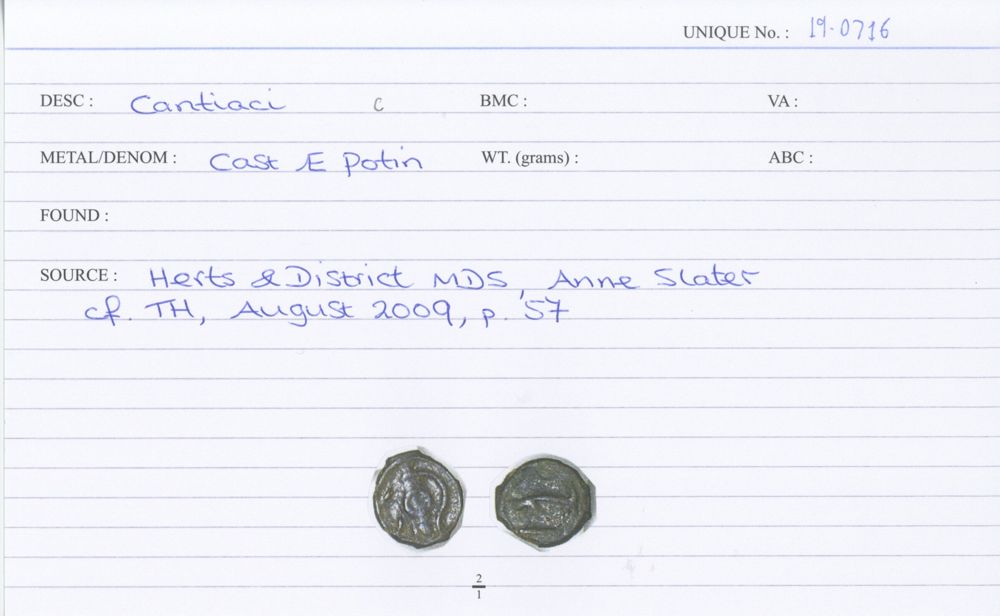 UNIQUE No. : 19-0716
DESC : Cantiaci c BMC : VA :
METAL/DENOM : Cast Æ Potin WT. (grams) : ABC :
FOUND :
SOURCE : Herts & District MDS, Anne Slater
cf. TH, August 2009, p. 57
2
1